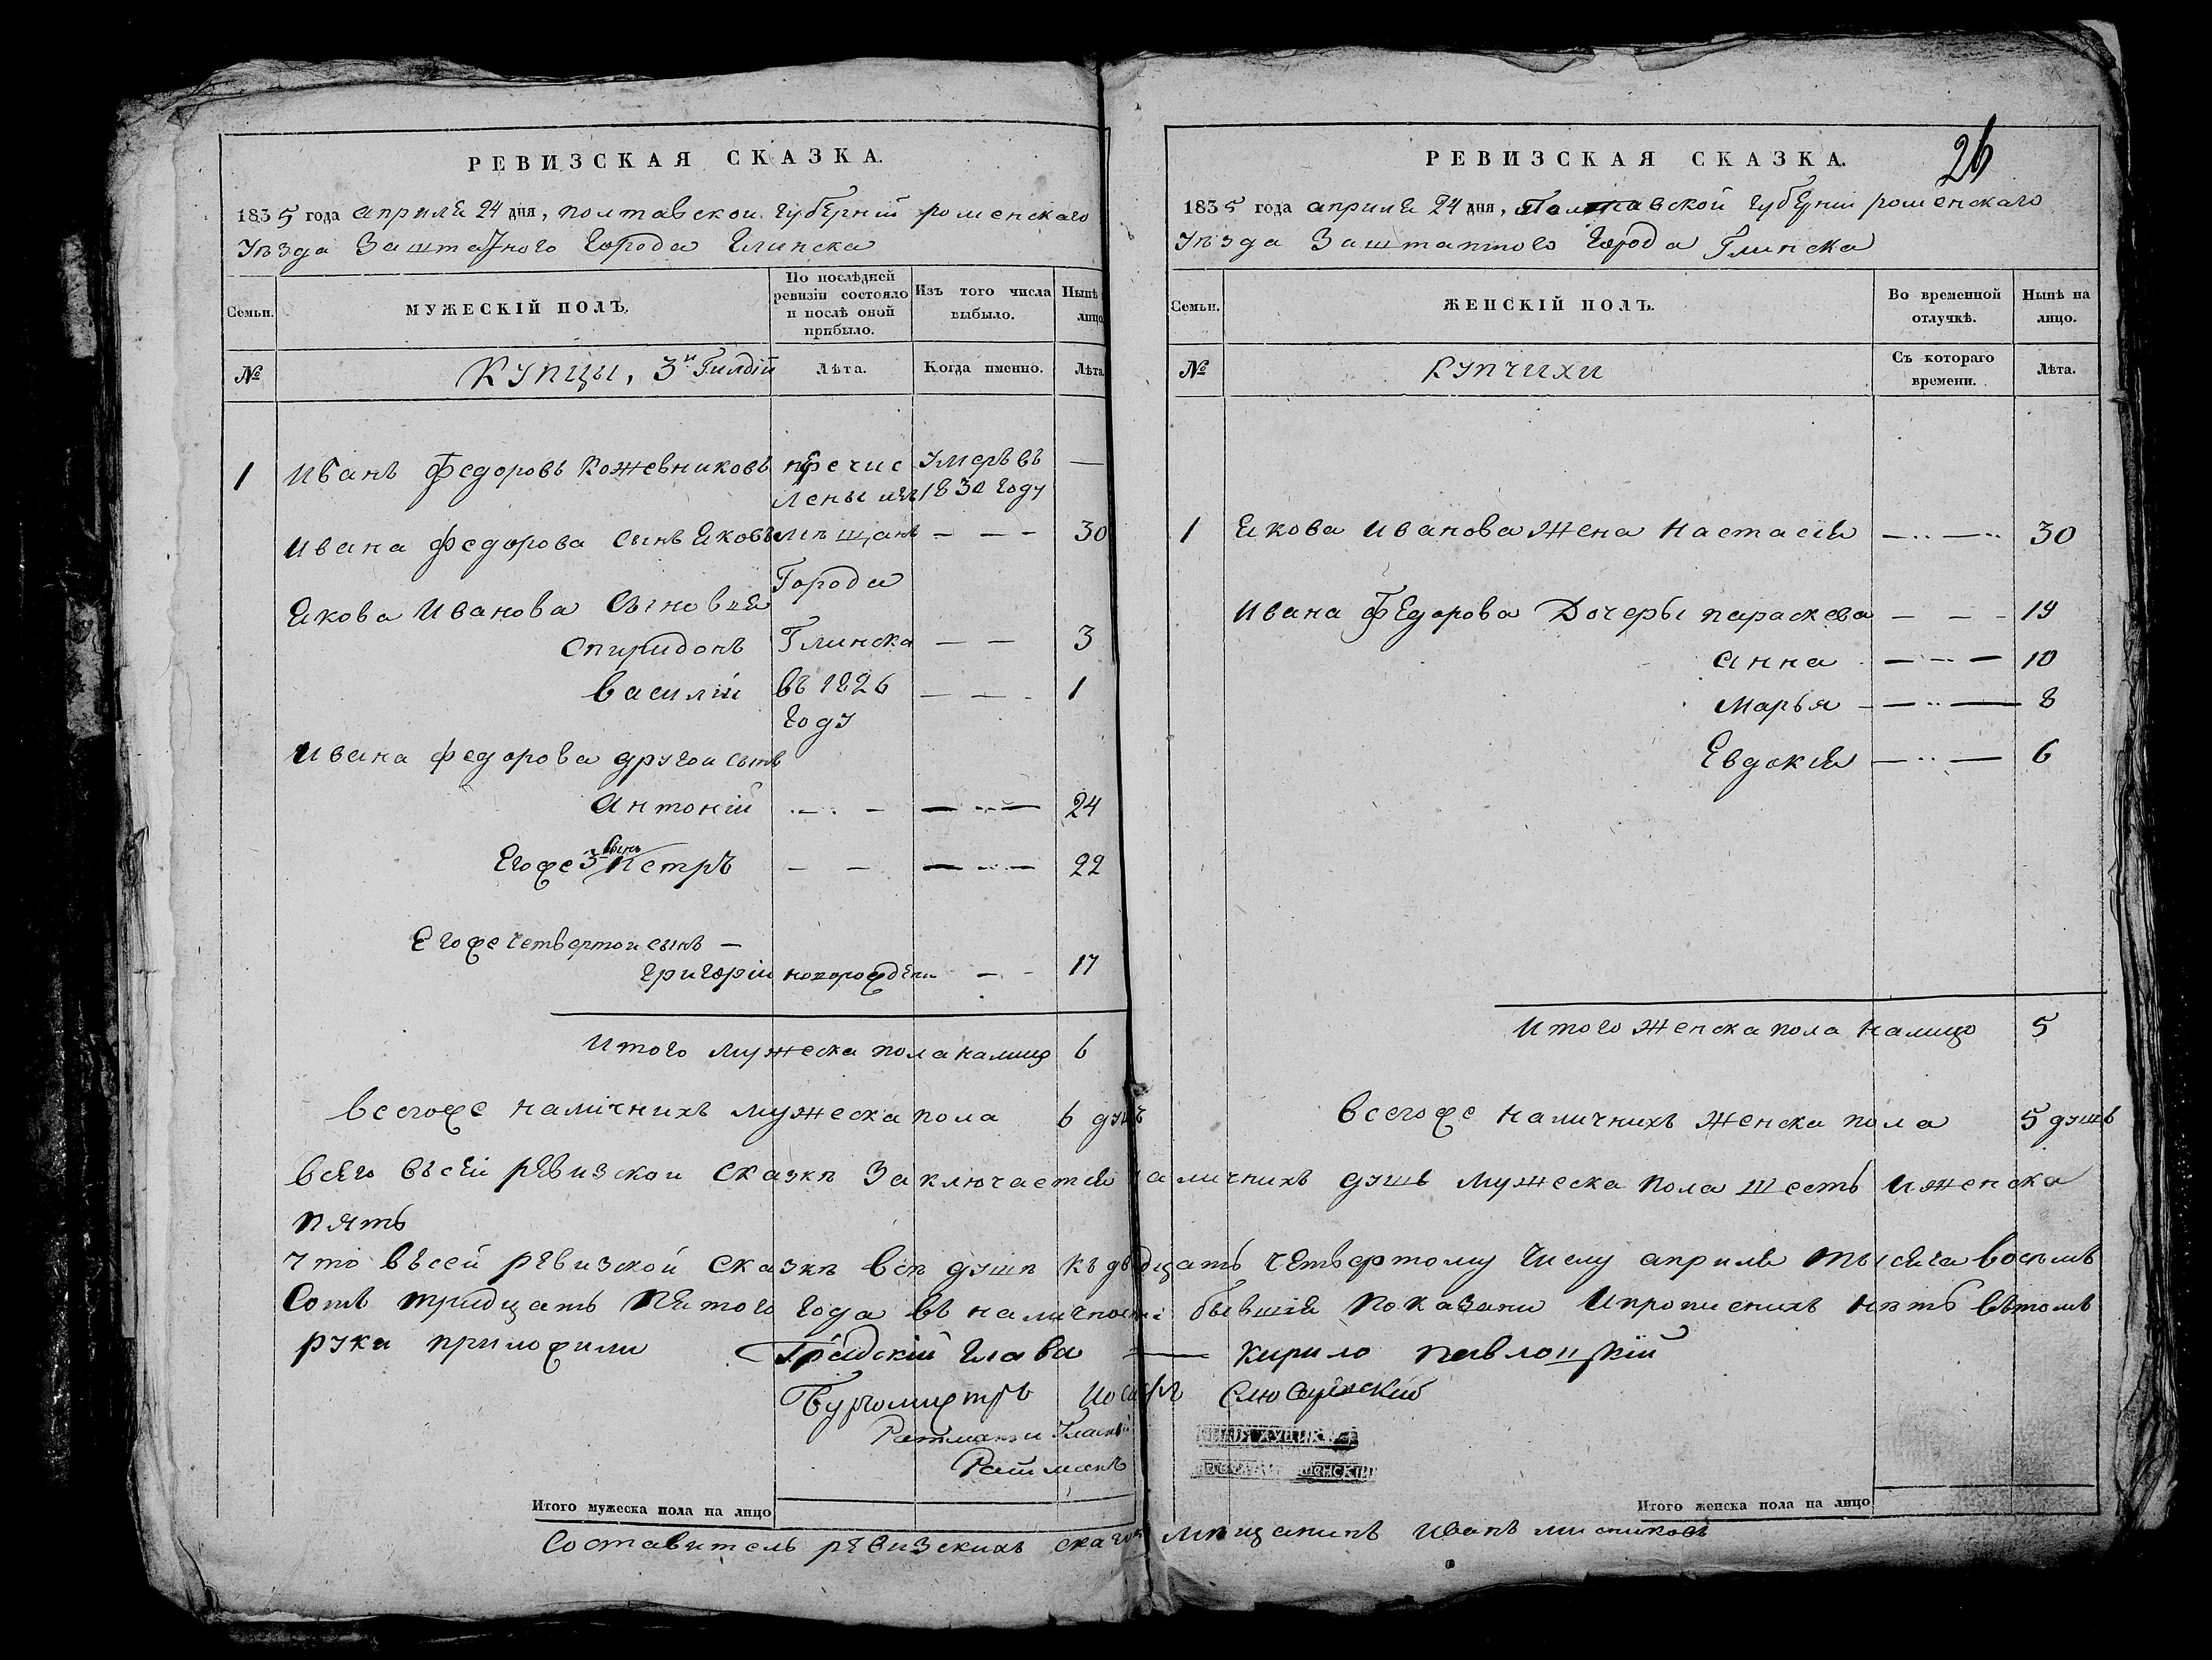 РЕВИЗСКАЯ СКАЗКА.
1835 года апреля 24 дня, полтавской губерній роменскаго
уѣзда Заштатного города Глинска
Семьи.
МУЖЕСКІЙ ПОЛЪ.
По послѣдней ревизіи состояло и послѣ оной прибыло.
Изъ того числа выбыло.
Нынѣ лицо
№
Купцы, 3й Гилдіи
Лѣта.
Когда именно.
Лѣта
1 Иванъ Федоровъ Кожевниковъ пречис умеръ въ —
лены изъ 1830 году
Ивана Федорова сынъ Яковъ мѣщанъ — — — 30
Города
Якова Иванова сыновья
Спиридонъ Глинска — — 3
Василій въ 1826 — — - 1
году
Ивана Федорова другой сынъ
Антоній 24
Егоже 3 сынъ Петръ — — 22
Егоже четвертои сынъ —
Григорій новорожденъ — - 17
Итого мужеска пола налицо 6
Всегоже наличнихъ мужеска пола 6 душъ
РЕВИЗСКАЯ СКАЗКА.
26
1835 года апреля 24 дня, Полтавской губерніи роменскаго
уѣзда Заштатного города Глинска
Семьи.
ЖЕНСКІЙ ПОЛЪ.
Во временной отлучкѣ.
Нынѣ на лицо.
№
Купчихи
Съ котораго времени.
Лѣта.
1 Якова Иванова Жена Настасія 30
Ивана Федорова Дочеры параскева — — - 14
Анна 10
Марья 8
Евдокія 6
Итого Женска пола налицо 5
Всегоже наличнихъ Женска пола 5 душъ
Всего въсей ревизской сказкѣ Заключается наличнихъ душъ мужеска пола шесть и женска
пять
Что въсей ревизской сказкѣ всѣ душѣ къ двацать четвертому числу апреля тысяча восѣмъ
Сотъ тридцать пятого года въ наличности бывшія показани и прописнихъ нѣтъ вътомъ
руки приложили Градскій Глава — Кирило Павлоцкій
Бургомистръ Іосифъ
Ратманъ
Ратманъ
Итого мужеска пола на лицо
Итого женска пола на лицо
Составитель ревизскихъ сказокъ мѣщанинъ Иванъ